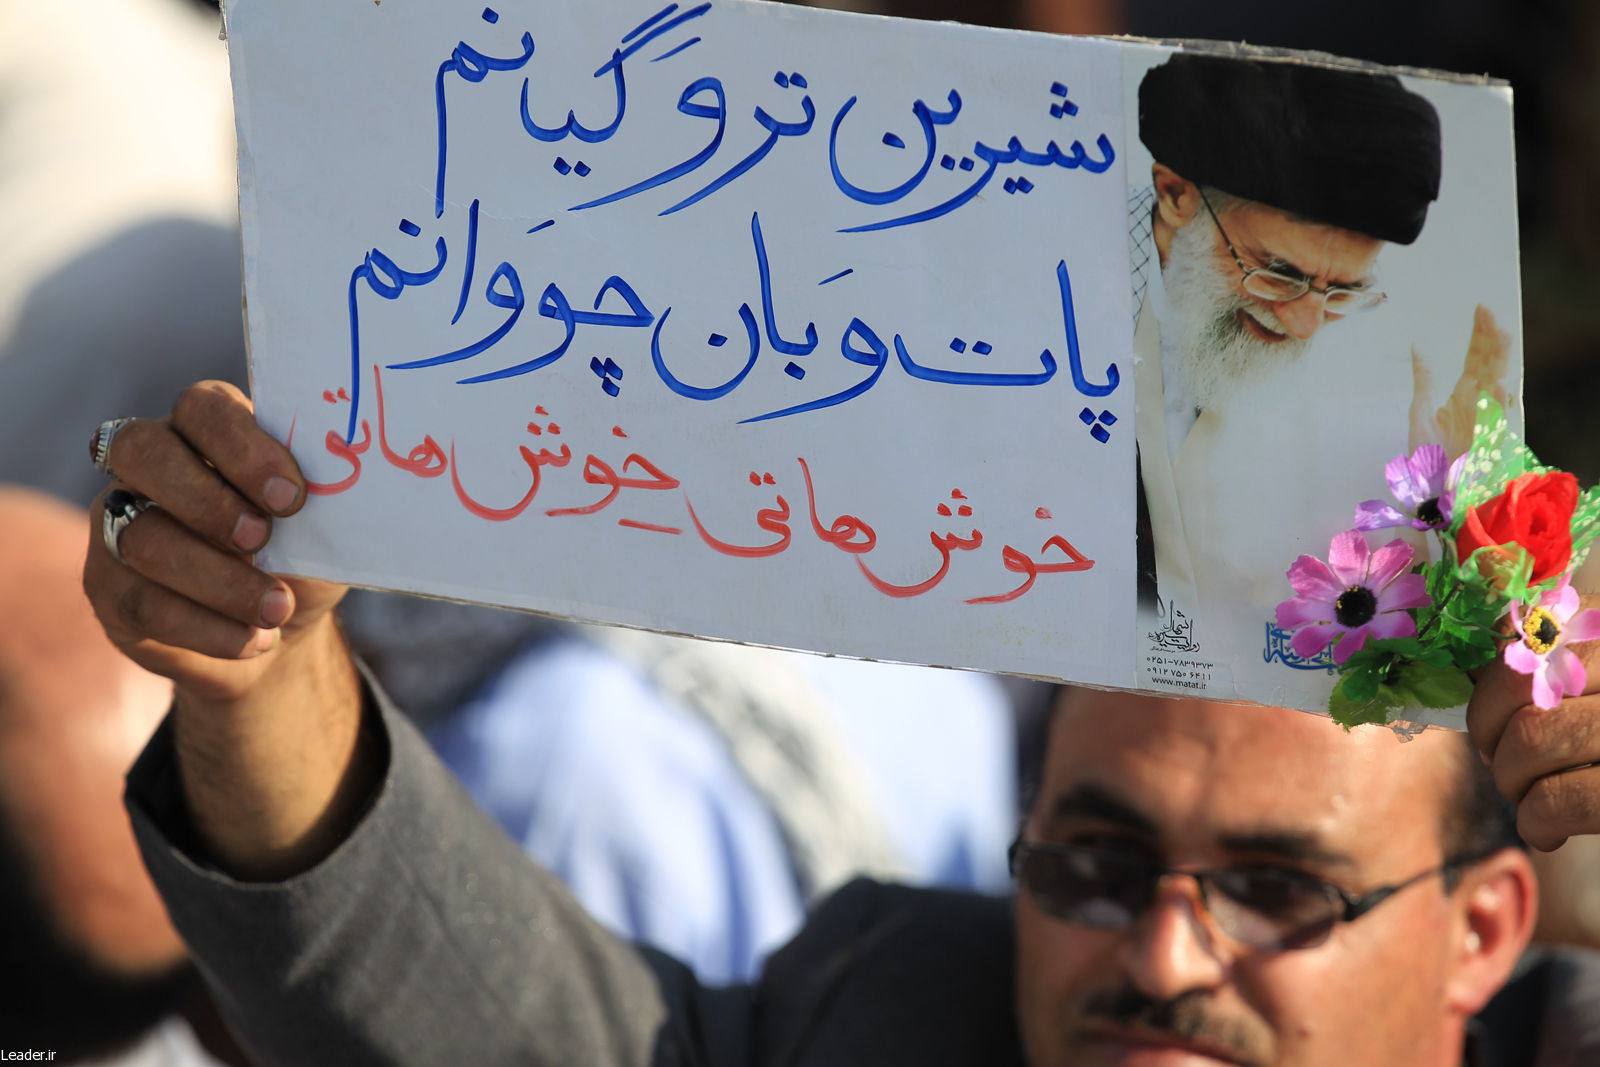 شیرین ترو گیانم
پات وَبان چوَوانم
خوش هاتی خوش هاتی
۰۲۵۱-۷۸۳۹۳۷۳
۰۹۱۲ ۷۵۰ ۶۴۱۱
www.matat.ir
Leader.ir